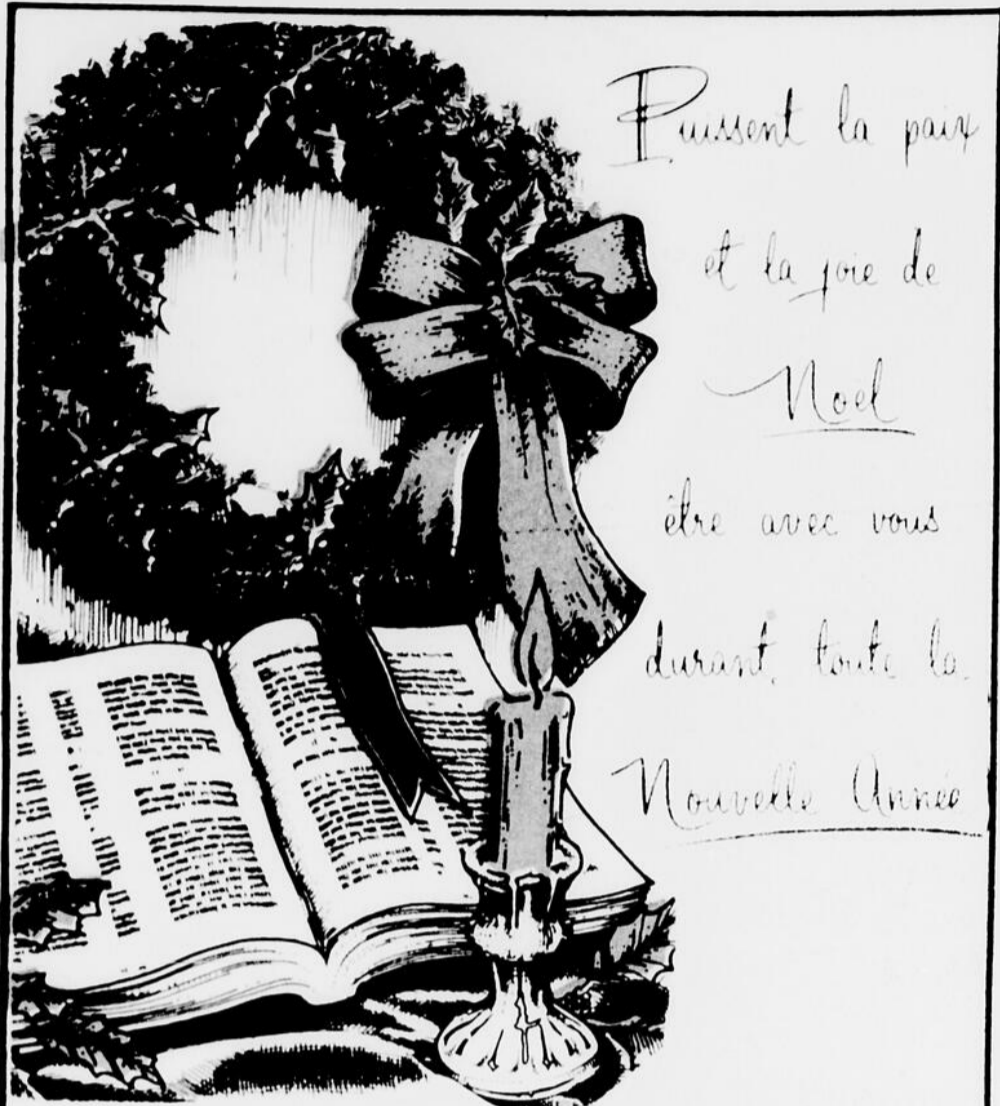 Puissent la paix
et la joie de
Noel
être avec vous
durant toute la
Nouvelle Année